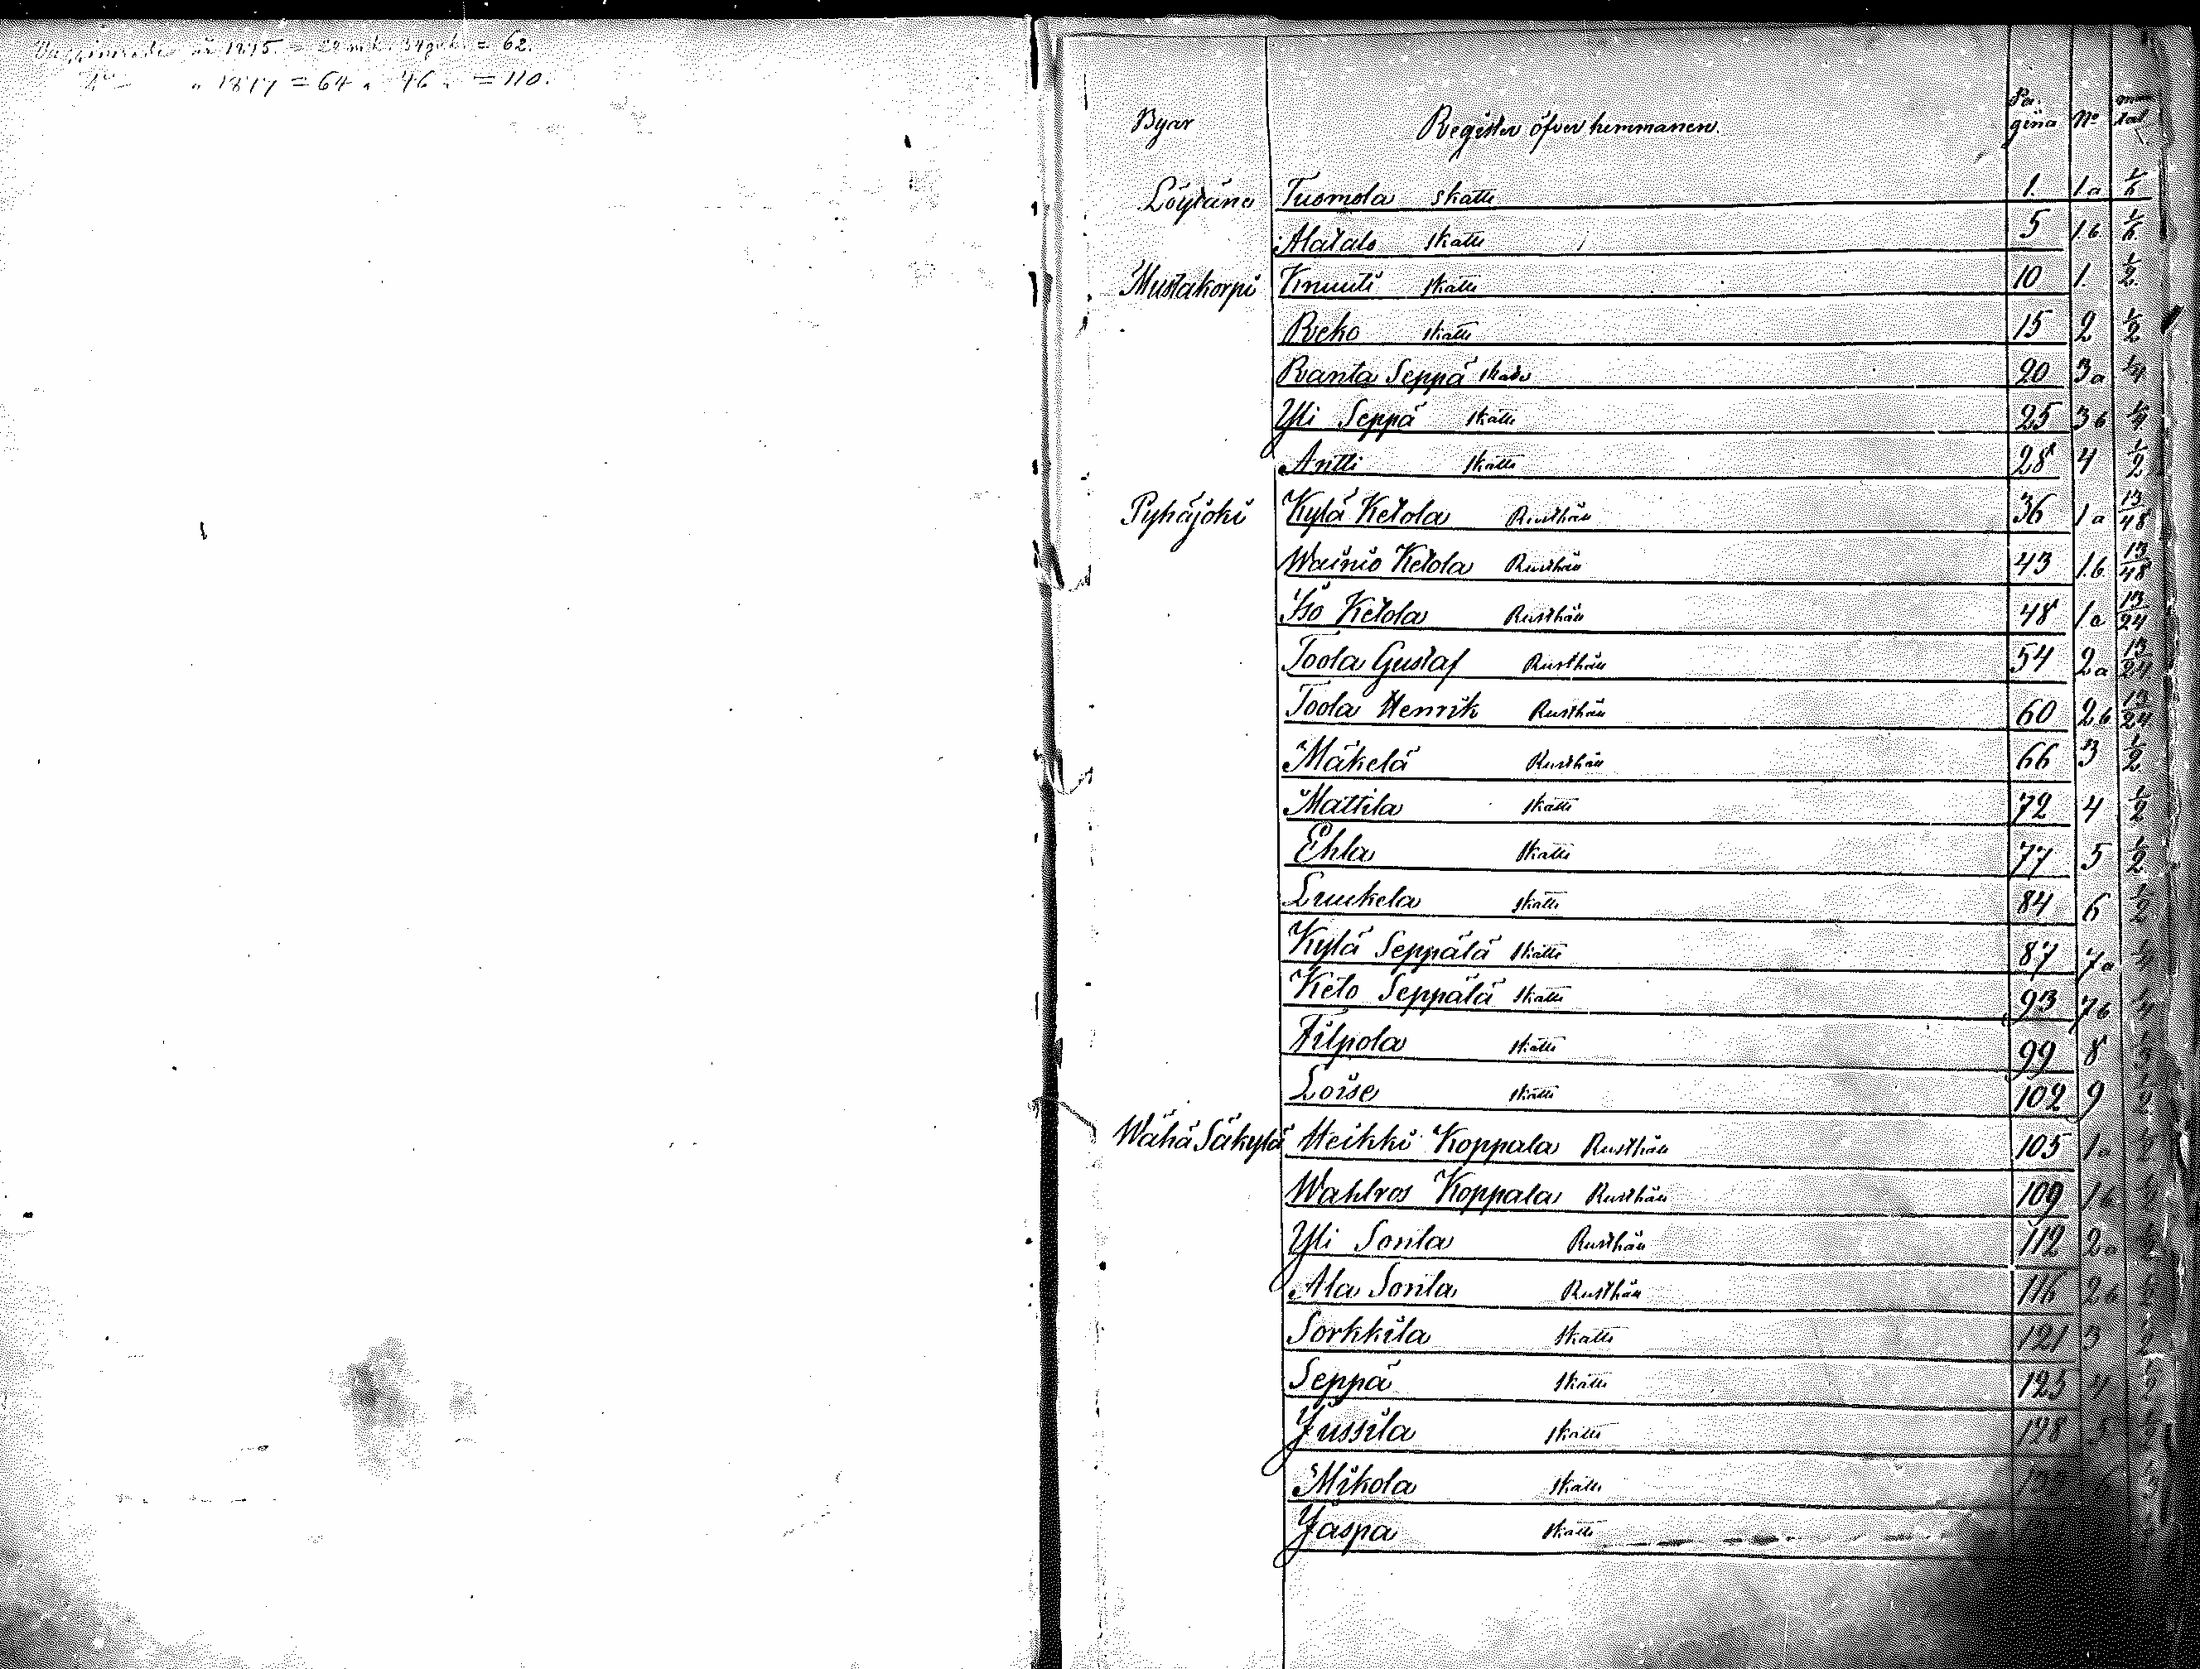 år 1875. = 28 mk. 34 qvk. = 62.
d:o " 1877 = 64 " 46 " = 110.
Byar Register öfver hemmanen. Pagina No mantal
Löytäne Tuomola Skatte 1. 1a 1/6
Alatalo Skatte 5 1b 1/6
Mustakorpi Knuuti Skatte 10 1. 1/2
Reko Skatte 15 2 1/2
Ranta Seppä Skatte 20 3a 1/4
Yli Seppä Skatte 25 3b 1/4
Antti Skatte 28 4 1/2
Pyhäjoki Kylä Ketola Rusthåll 36 1a 13/48
Wainio Ketola Rusthåll 43 1b 13/48
Iso Ketola Rusthåll 48 1a 13/24
Toola Gustaf Rusthåll 54 2a 13/24
Toola Henrik Rusthåll 60 2b 13/24
Mäkelä Rusthåll 66 3 1/2
Mattila Skatte 72 4 1/2
Ehla Skatte 77 5 1/2
Luukela Skatte 84 6 1/2
Kylä Seppälä Skatte 87 7a 1/4
Keto Seppälä Skatte 93 7b 1/4
Filpola Skatte 99 8
Loise Skatte 102 9
Wähä Säkylä Heikki Koppala Rusthåll 105 1a
Wahlros Koppala Rusthåll 109 1b
Yli Sonila Rusthåll 112 2a
Ala Sonila Rusthåll 116 2b
Sorkkila Skatte 121 3
Seppä Skatte 125 4
Jussila Skatte 128 5
Mikola Skatte
Jaspa Skatte